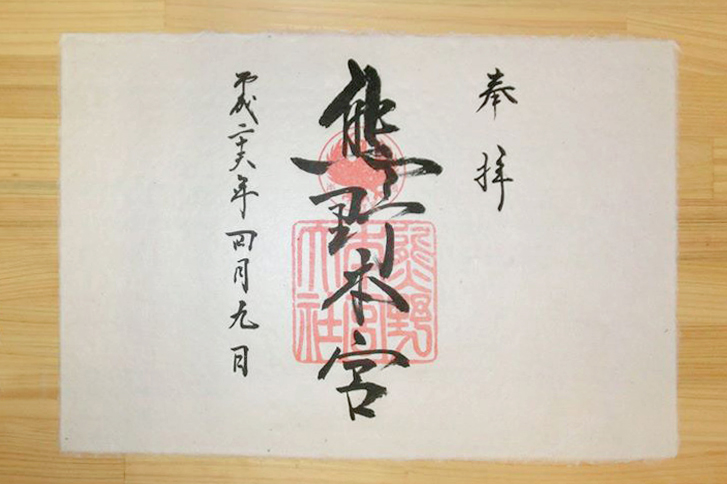 奉拝
熊野本宮
熊野本宮大社
平成二十六年四月九日